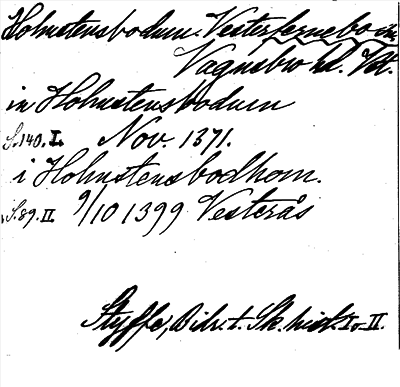 Holmstensbodum. Vesterfernebo sn,
Vagnsbro hd. Vstm.
in Holmstensbodum
S. 140. I. Nov. 1371.
i Holmstensbodhom.
S. 89. II. 9/10 1399 Vesterås
Styffe, Bidr. t. Sk. hist. I o. II.